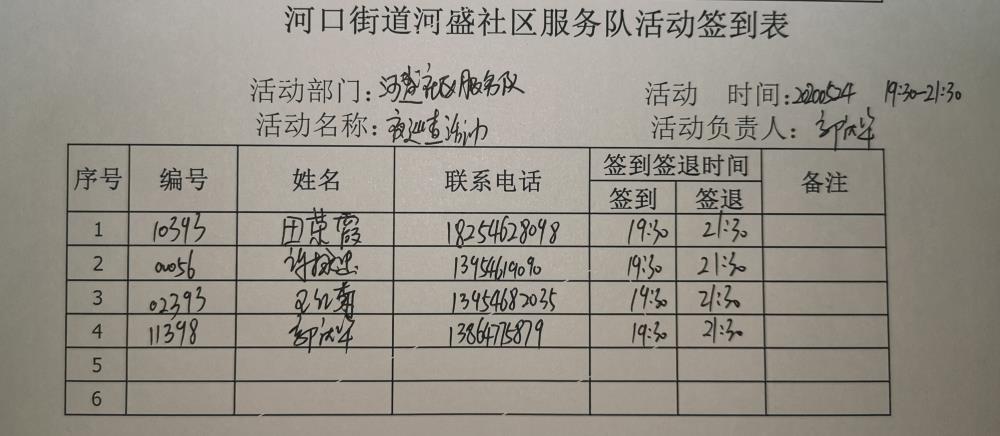 河口街道河盛社区服务队活动签到表
活动部门：河盛社区服务队 活动 时间：20200524 19:30-21:30
活动名称：夜巡查 活动负责人：郭庆军
序号 编号 姓名 联系电话 签到签退时间 备注
签到 签退
1 10393 田荣霞 18254628098 19:30 21:30
2 00056 13954619090 19:30 21:30
3 02393 13954682035 19:30 21:30
4 11398 郭庆军 13864775879 19:30 21:30
5
6